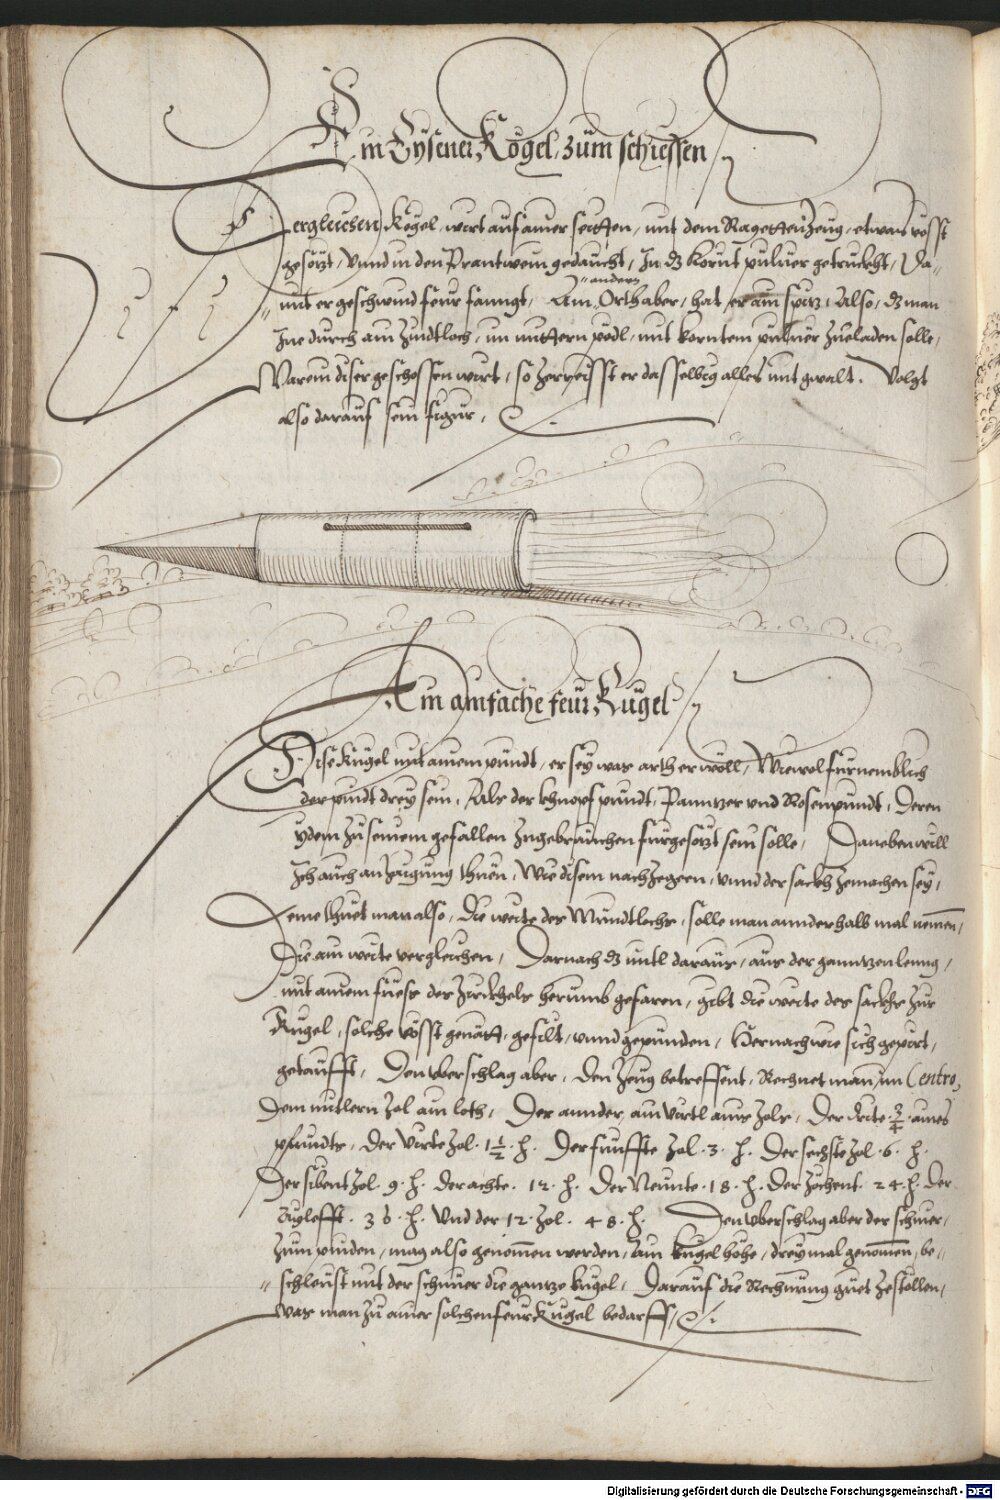 Ein Eÿsener Kögel, zům schiessen
Dergleichen Kögel, wirt auf ainer seitten, mit dem Ragetten Zeug, etwas vösst
gesetzt, vnnd in den Prantwein gedaucht, In dz Kornt puluer getruckht, Da-
andern
mit er geschwind feur fanngt, Am Orth aber, hat er ain spitz, Also, dz man
Ine durch ain Zindtloch, im mittern podl, mit korntem puluer zueladen solle,
Warein diser geschossen wirt, so zerreisst er dasselbig alles mit gwalt. Volgt
also darauf sein figur,
Ain ainfache feur Kugel
Dise Kugel mit ainem pundt, er sey was arth er wöll, Wiewol furnemblich
der pundt dreÿ sein, Als der khnopf pundt, Panntzer vnd Rosenpundt, Deren
ÿdem zu seinem gefallen Zugebrauchen furgesetzt sein solle, Daneben will
Ich auch anzaigung thuen, Wie disem nachzegeen, vnnd der sackh zemachen seÿ,
Deme thuet man also, Die weite des Mundtlochs, solle man annderhalb mal nemen,
Die ain weite vergleichen, Darnach dz mitl daraus, aus der ganntzen leinng,
mit ainem fuess des Zirckhels herumb gefaren, gibt die weite des sackhs zur
Kugel, solche vösst genätt, gefilt, vnnd gepunden, Hernach wie sich gepürt,
getaufft, Den vberschlag aber, den Zeug betreffent, Rechnet man im Centro,
Dem mitlern Zol ain loth, Der annder, ain Viertl aines Zols, Der drite ¾ aines
pfundts, Der Vierte Zol . 1½ . ℔. Der funffte Zol . 3 . ℔. Der sechste Zol . 6 . ℔.
Der sibent Zol . 9 . ℔. der achte . 12 . ℔. Der Neunte . 18 . ℔. Der Zöchent . 24 . ℔. Der
Aÿlefft . 36 . ℔. Vnd der 12 . Zol . 48 . ℔. Den vberschlag aber der schnuer,
zum pinden, mag also genomen werden, Ain kugel höhe, dreÿmal genomen, be-
schleust mit der schnuer die gantze kugel, Darauf die Rechnung guet zestellen,
Was man zu ainer solchen feur Kugel bedarff,
Digitalisierung gefördert durch die Deutsche Forschungsgemeinschaft - DFG